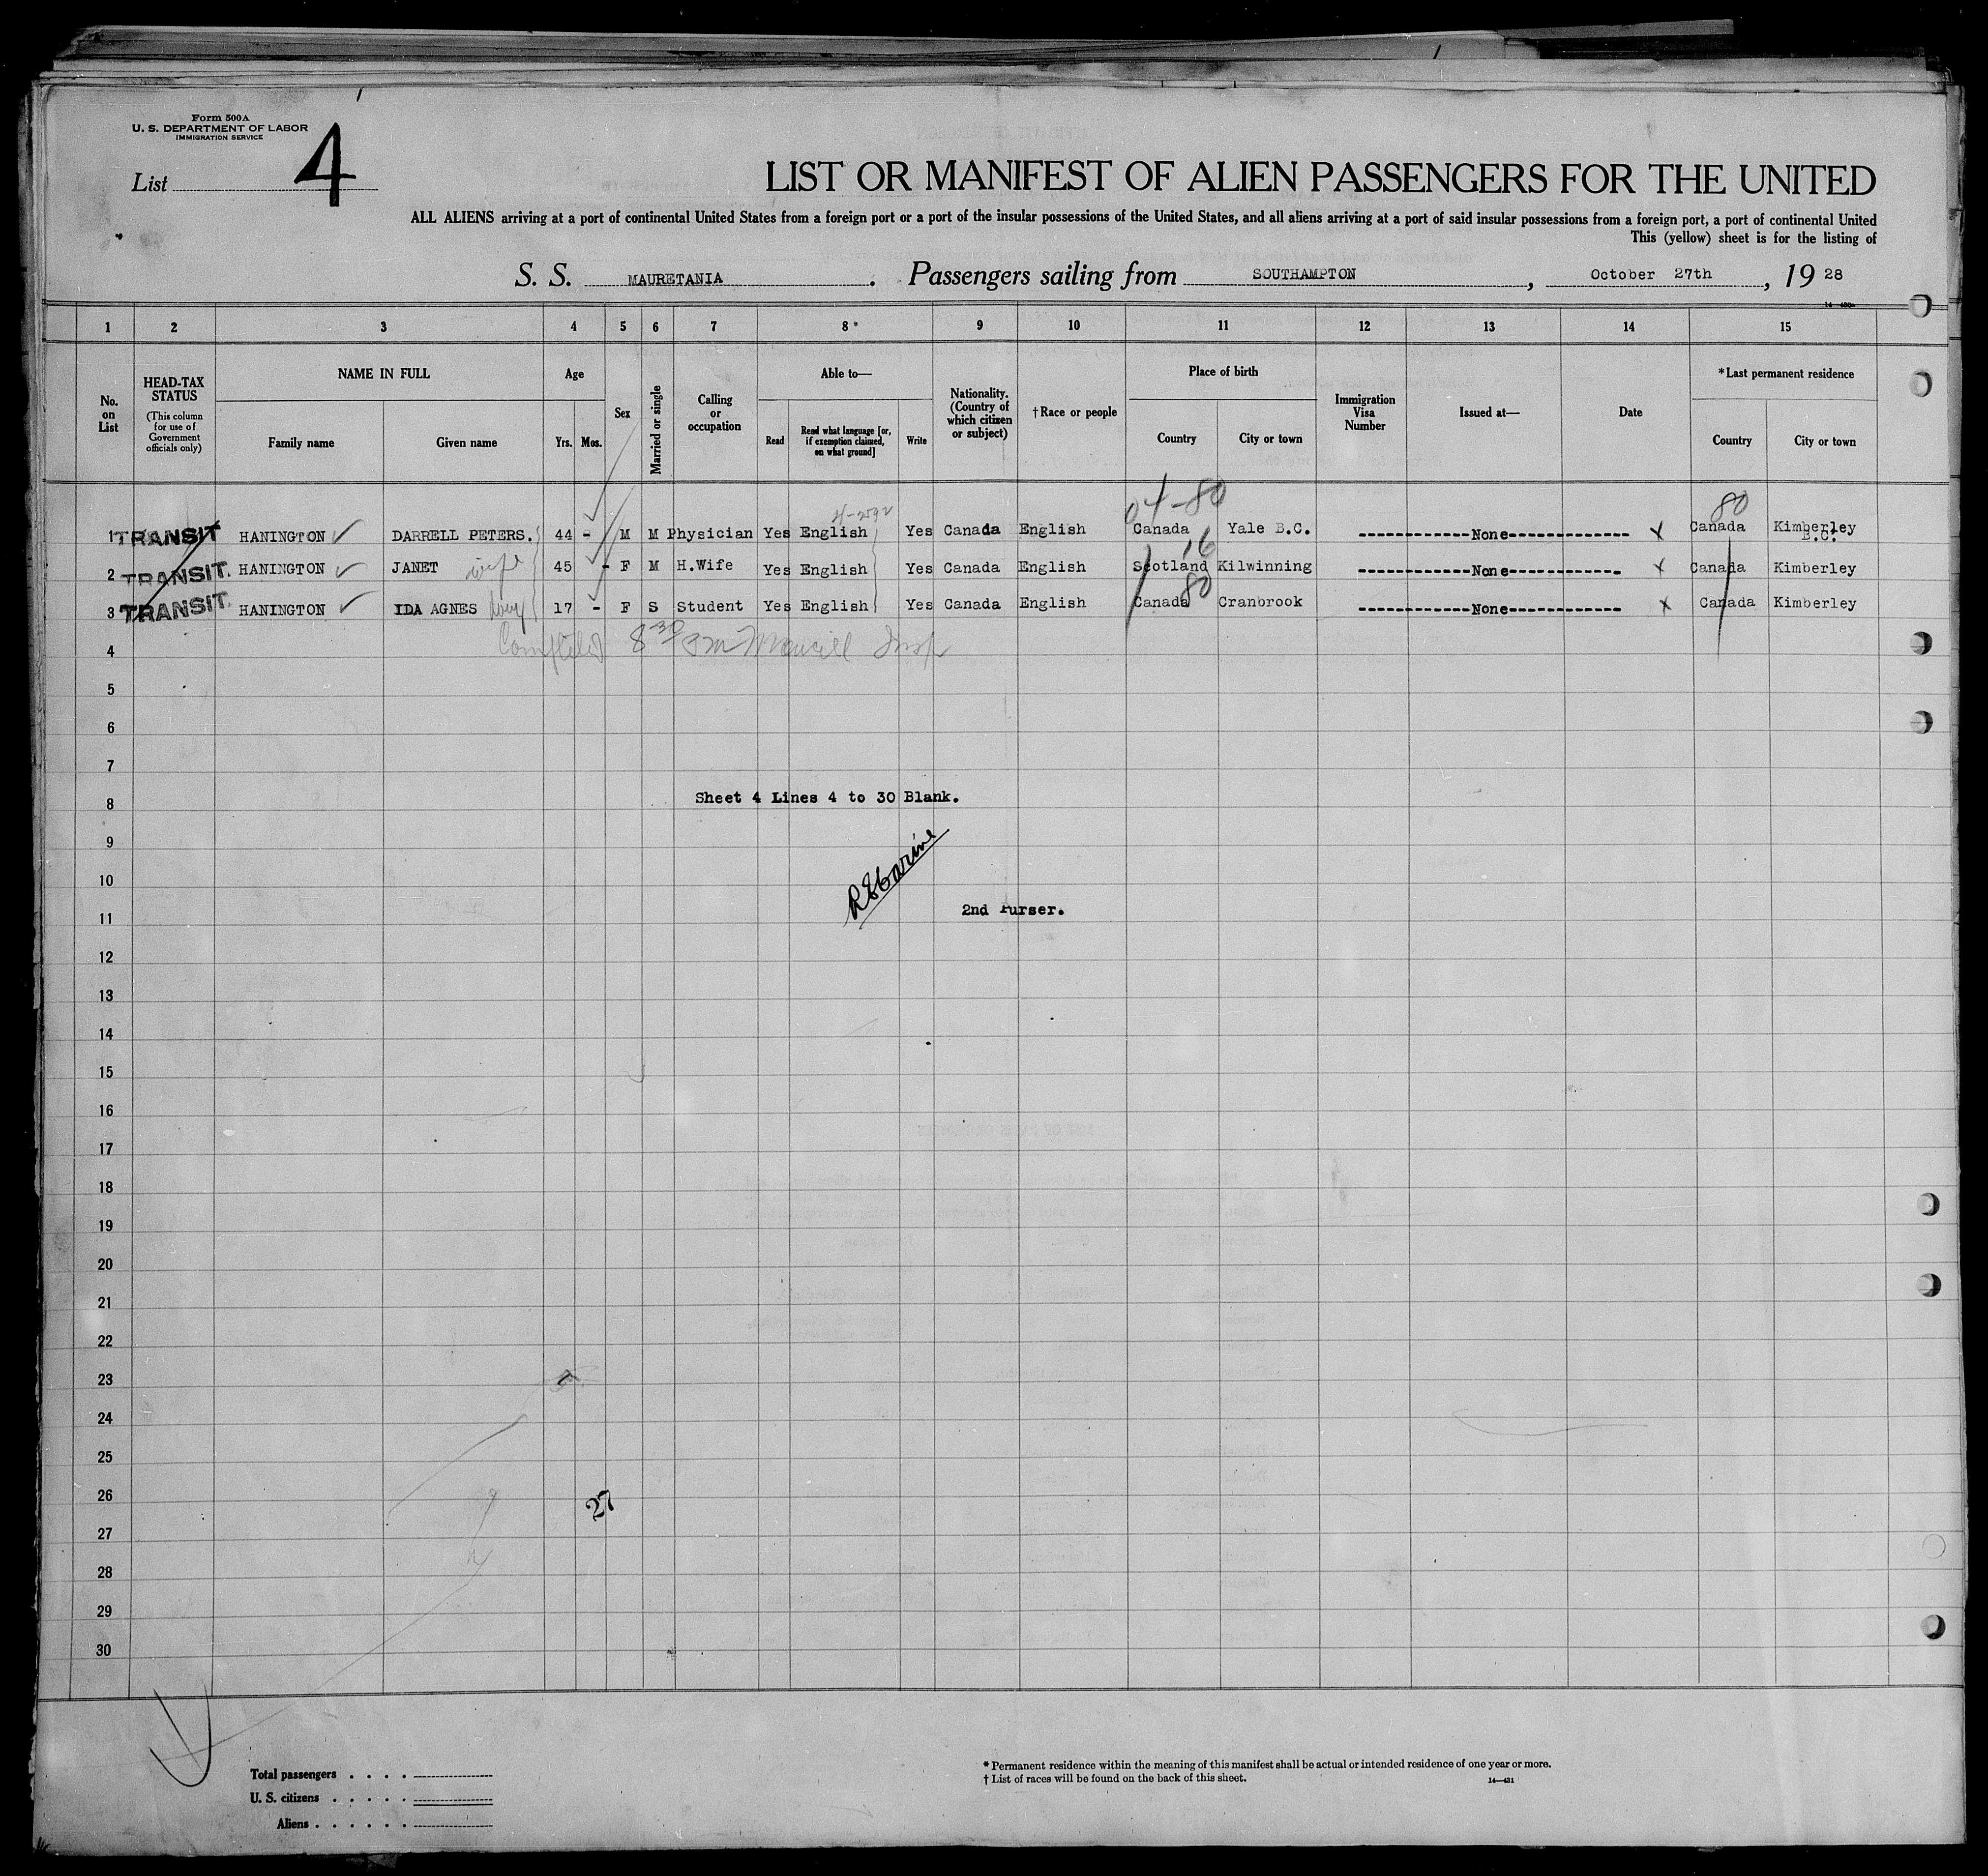 Form 500A
U. S. DEPARTMENT OF LABOR
IMMIGRATION SERVICE
List 4
LIST OR MANIFEST OF ALIEN PASSENGERS FOR THE UNITED
ALL ALIENS arriving at a port of continental United States from a foreign port or a port of the insular possessions of the United States, and all aliens arriving at a port of said insular possessions from a foreign port, a port of continental United
This (yellow) sheet is for the listing of
S. S. MAURETANIA. Passengers sailing from SOUTHAMPTON, October 27th, 1928
1 2 3 4 5 6 7 8* 9 10 11 12 13 14 15
No. on List
HEAD-TAX STATUS (This column for use of Government officials only)
NAME IN FULL
Family name
Given name
Age
Yrs.
Mos.
Sex
Married or single
Calling or occupation
Able to—
Read
Read what language [or, if exemption claimed, on what ground]
Write
Nationality. (Country of which citizen or subject)
†Race or people
Place of birth
Country
City or town
Immigration Visa Number
Issued at—
Date
*Last permanent residence
Country
City or town
04-80 80
1 TRANSIT HANINGTON DARRELL PETERS. 44 - M M Physician Yes English Yes Canada English Canada Yale B.C. None X Canada Kimberley B.C.
16
2 TRANSIT. HANINGTON JANET wife 45 - F M H.Wife Yes English Yes Canada English Scotland Kilwinning None X Canada Kimberley
80
3 TRANSIT. HANINGTON IDA AGNES 17 - F S Student Yes English Yes Canada English Canada Cranbrook None X Canada Kimberley
4 8 30 PM
5
6
7
8 Sheet 4 Lines 4 to 30 Blank.
9
10
11 2nd Purser.
12
13
14
15
16
17
18
19
20
21
22
23
24
25
26 27
27
28
29
30
Total passengers . . . .
U. S. citizens . . . . .
Aliens . . . . . .
* Permanent residence within the meaning of this manifest shall be actual or intended residence of one year or more.
† List of races will be found on the back of this sheet. 14—431